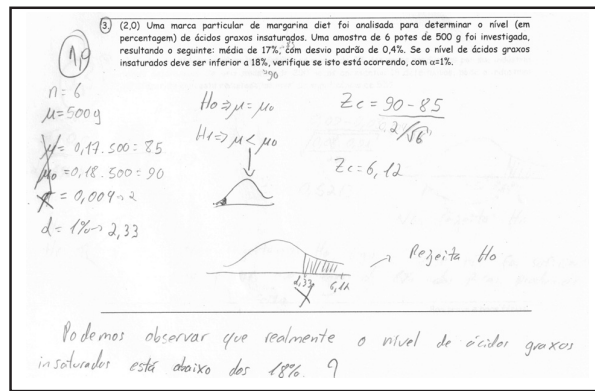 3. (2,0) Uma marca particular de margarina diet foi analisada para determinar o nível (em
percentagem) de ácidos graxos insaturados. Uma amostra de 6 potes de 500 g foi investigada,
resultando o seguinte: média de 17%, com desvio padrão de 0,4%. Se o nível de ácidos graxos
insaturados deve ser inferior a 18%, verifique se isto está ocorrendo, com α=1%.
90
n = 6
μ = 500g
= 0,17.500 = 85
μo = 0,18.500 = 90
= 0,004 → 2
α = 1% → 2,33
Ho ⇒ μ = μo
H1 ⇒ μ < μo
Zc = 90 - 85
2/√6
Zc = 6,12
2,33 6,12
→ Rejeita Ho
Podemos observar que realmente o nível de ácidos graxos
insaturados está abaixo dos 18%. ?